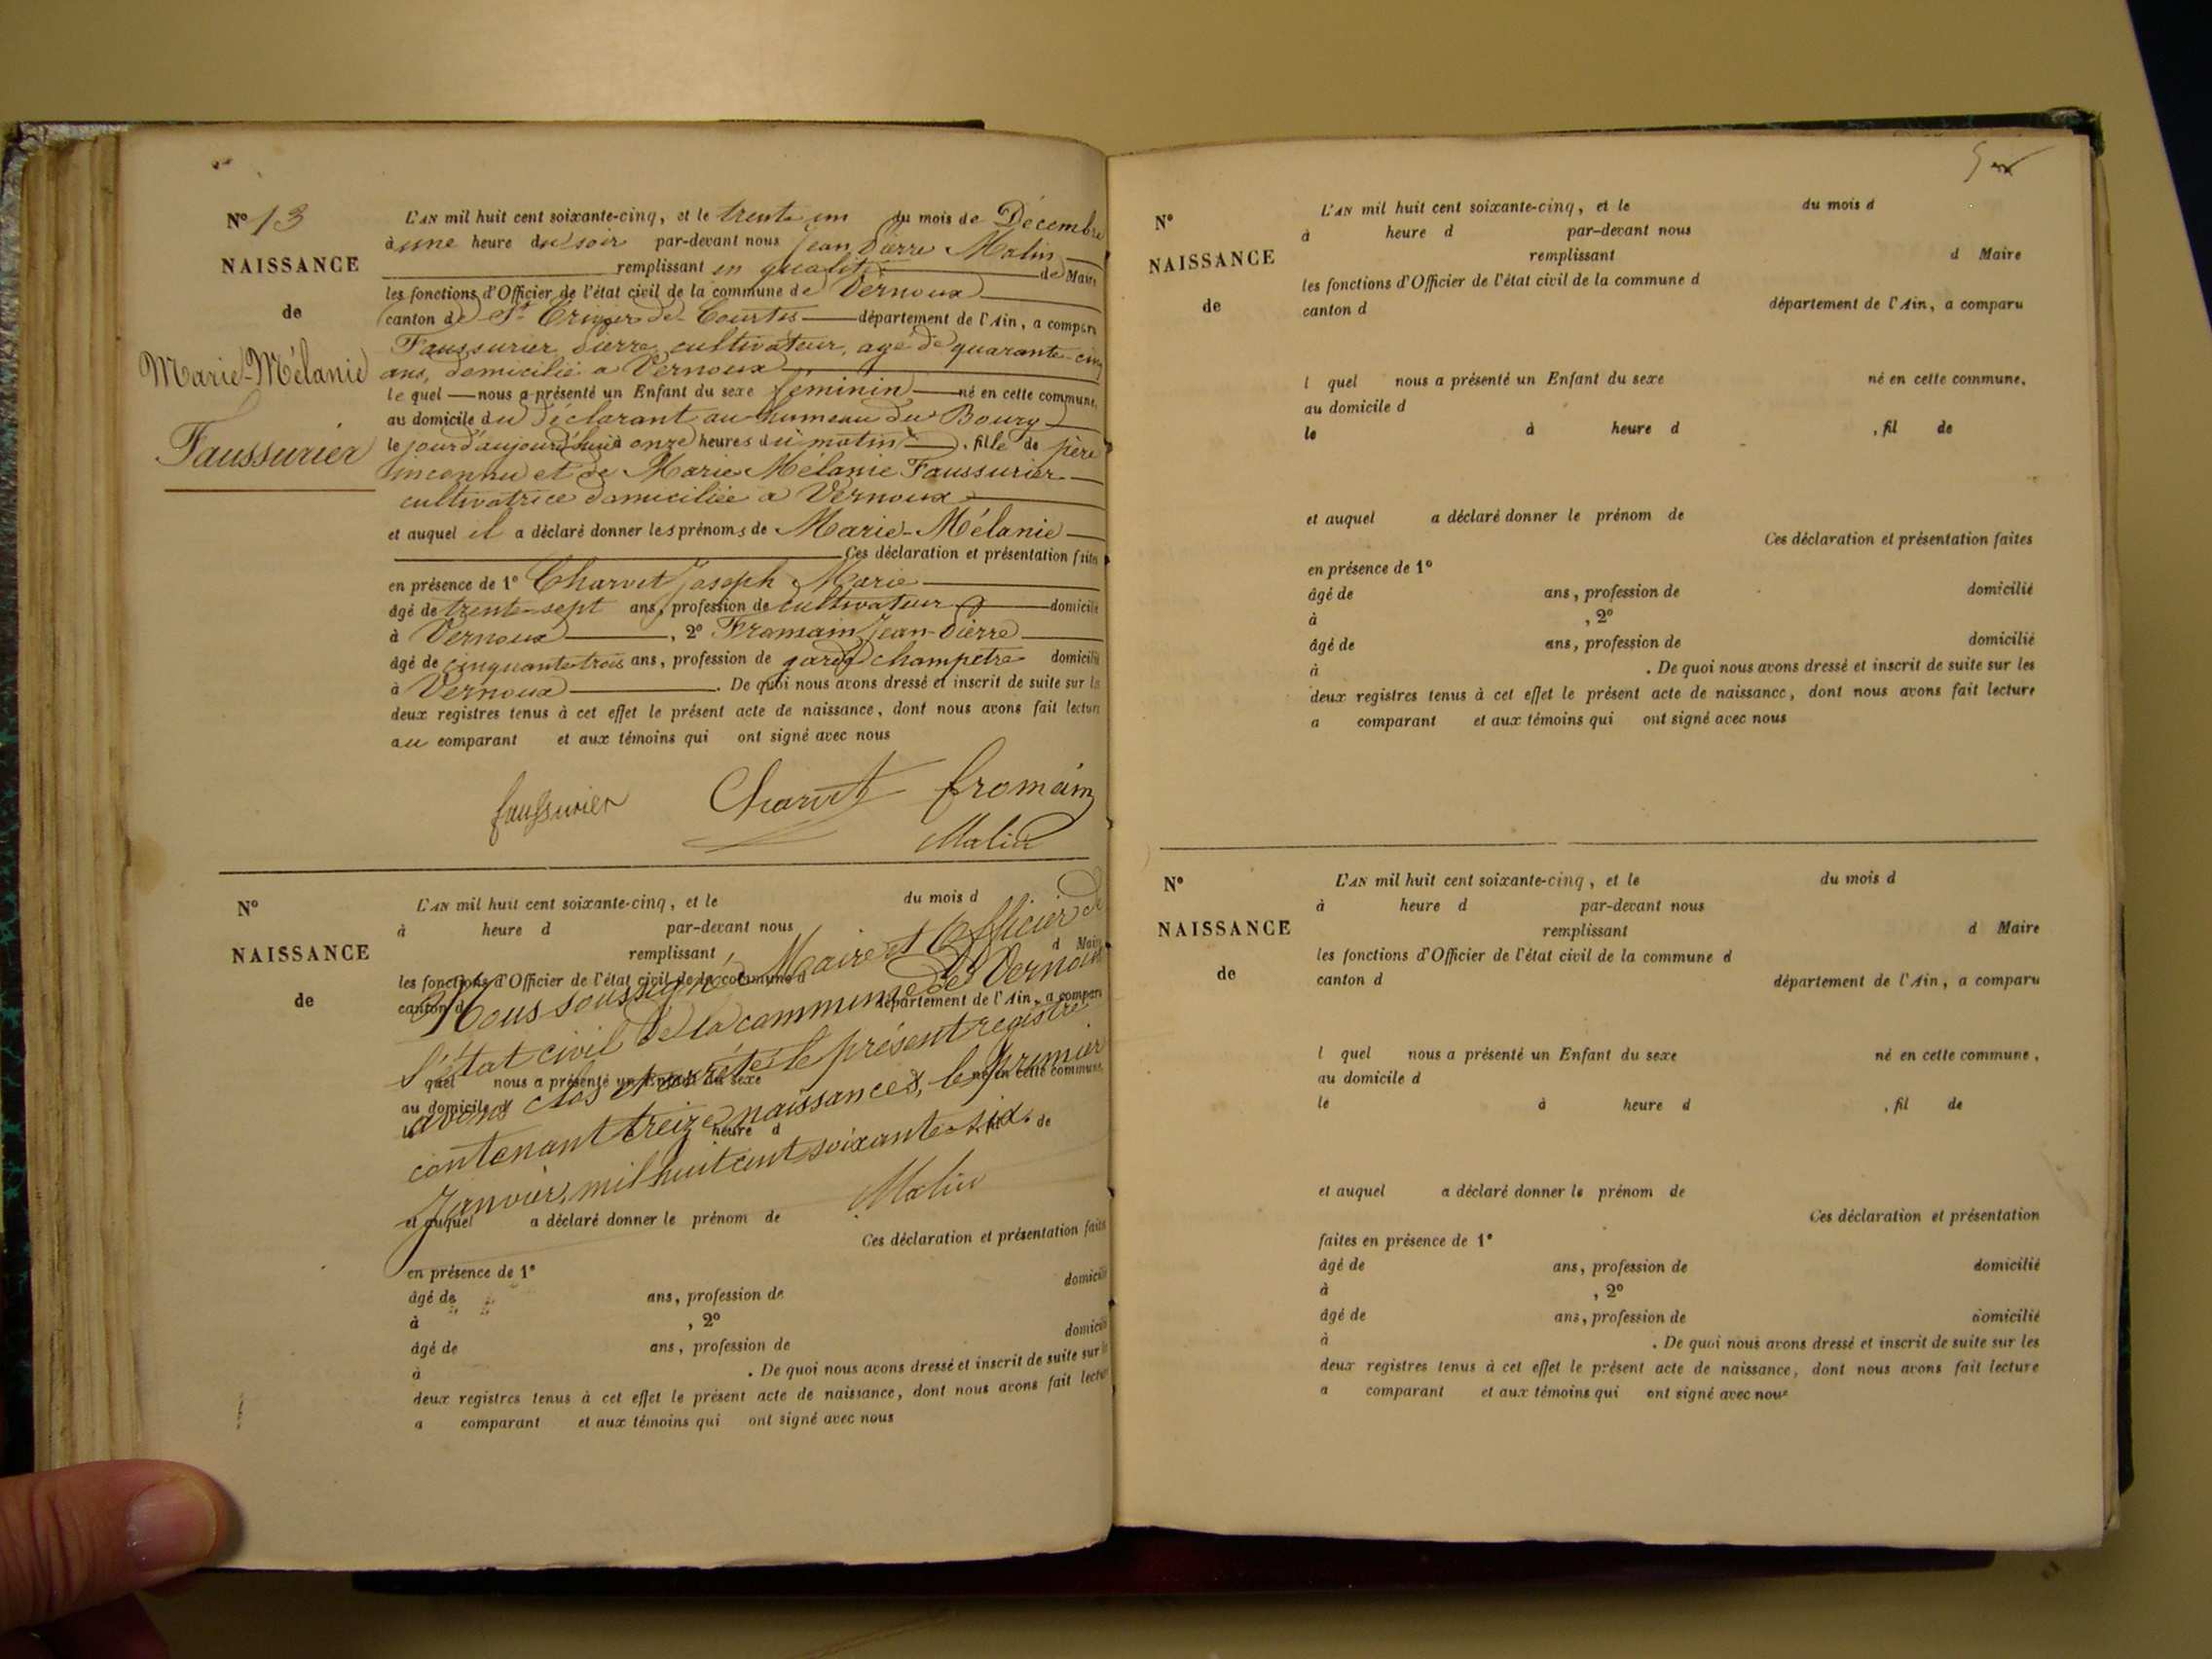 N° 13
NAISSANCE
de
Marie-Mélanie
Faussurier
L'AN mil huit cent soixante-cinq, et le trente un du mois de Décembre
à une heure du soir par-devant nous Jean Pierre Malin
remplissant en qualité de Maire
les fonctions d'Officier de l'état civil de la commune de Vernoux
canton de St Trivier de Courtes département de l'Ain, a comparu
Faussurier Pierre, cultivateur, agé de quarante-cinq
ans, domicilié a Vernoux
le quel nous a présenté un Enfant du sexe féminin né en cette commune,
au domicile du déclarant au hameau du Bourg
le jourd'aujourd'hui à onze heures du matin, fille de père
inconnu et de Marie Mélanie Faussurier
cultivatrice domiciliée a Vernoux
et auquel il a déclaré donner les prénoms de Marie-Mélanie
Ces déclaration et présentation faites
en présence de 1° Charvet Joseph Marie
âgé de trente-sept ans, profession de cultivateur domicilié
à Vernoux, 2° Fromain Jean-Pierre
âgé de cinquante trois ans, profession de garde champetre domicilié
à Vernoux. De quoi nous avons dressé et inscrit de suite sur les
deux registres tenus à cet effet le présent acte de naissance, dont nous avons fait lecture
au comparant et aux témoins qui ont signé avec nous
faussurier Charvet fromain
Malin
N°
NAISSANCE
de
L'AN mil huit cent soixante-cinq, et le du mois d
à heure d par-devant nous
remplissant d Maire
les fonctions d'Officier de l'état civil de la commune d
canton d département de l'Ain, a comparu
Nous soussigné, Maire et Officier de
l'état civil de la commune de Vernoux
avons clos et arrêté le présent registre
contenant treize naissances, le premier
Janvier, mil huit cent soixante-six.
Malin
quel nous a présenté un Enfant du sexe né en cette commune,
au domicile d
heure d de
et auquel a déclaré donner le prénom de
Ces déclaration et présentation faites
en présence de 1°
âgé de ans, profession de domicilié
à , 2°
âgé de ans, profession de domicilié
à . De quoi nous avons dressé et inscrit de suite sur les
deux registres tenus à cet effet le présent acte de naissance, dont nous avons fait lecture
a comparant et aux témoins qui ont signé avec nous
N°
NAISSANCE
de
L'AN mil huit cent soixante-cinq, et le du mois d
à heure d par-devant nous
remplissant d Maire
les fonctions d'Officier de l'état civil de la commune d
canton d département de l'Ain, a comparu
l quel nous a présenté un Enfant du sexe né en cette commune,
au domicile d
le à heure d , fil de
et auquel a déclaré donner le prénom de
Ces déclaration et présentation faites
en présence de 1°
âgé de ans, profession de domicilié
à , 2°
âgé de ans, profession de domicilié
à . De quoi nous avons dressé et inscrit de suite sur les
deux registres tenus à cet effet le présent acte de naissance, dont nous avons fait lecture
a comparant et aux témoins qui ont signé avec nous
N°
NAISSANCE
de
L'AN mil huit cent soixante-cinq, et le du mois d
à heure d par-devant nous
remplissant d Maire
les fonctions d'Officier de l'état civil de la commune d
canton d département de l'Ain, a comparu
l quel nous a présenté un Enfant du sexe né en cette commune,
au domicile d
le à heure d , fil de
et auquel a déclaré donner le prénom de
Ces déclaration et présentation
faites en présence de 1°
âgé de ans, profession de domicilié
à , 2°
âgé de ans, profession de domicilié
à . De quoi nous avons dressé et inscrit de suite sur les
deux registres tenus à cet effet le présent acte de naissance, dont nous avons fait lecture
a comparant et aux témoins qui ont signé avec nous